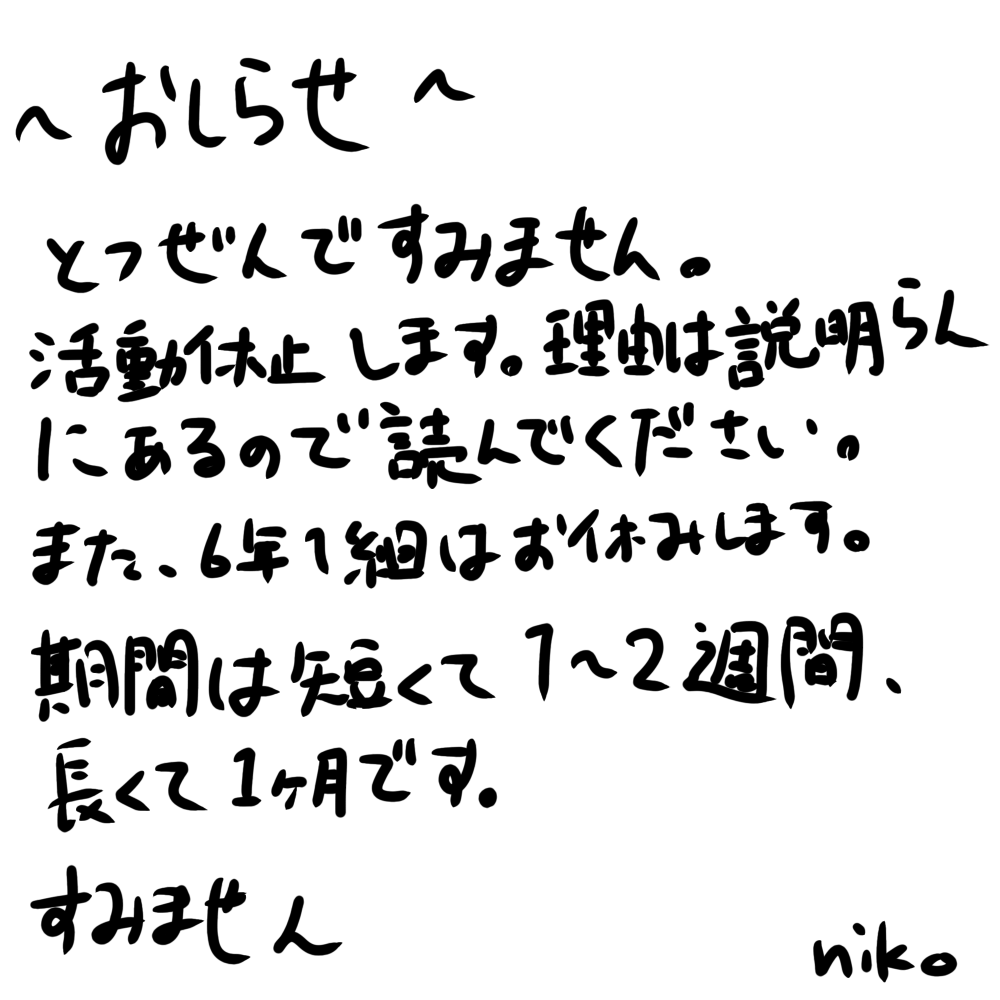 ～おしらせ～
とつぜんですみません。
活動休止します。理由は説明らん
にあるので読んでください。
また、6年1組はお休みします。
期間は短くて1～2週間、
長くて1ヶ月です。
すみません
niko